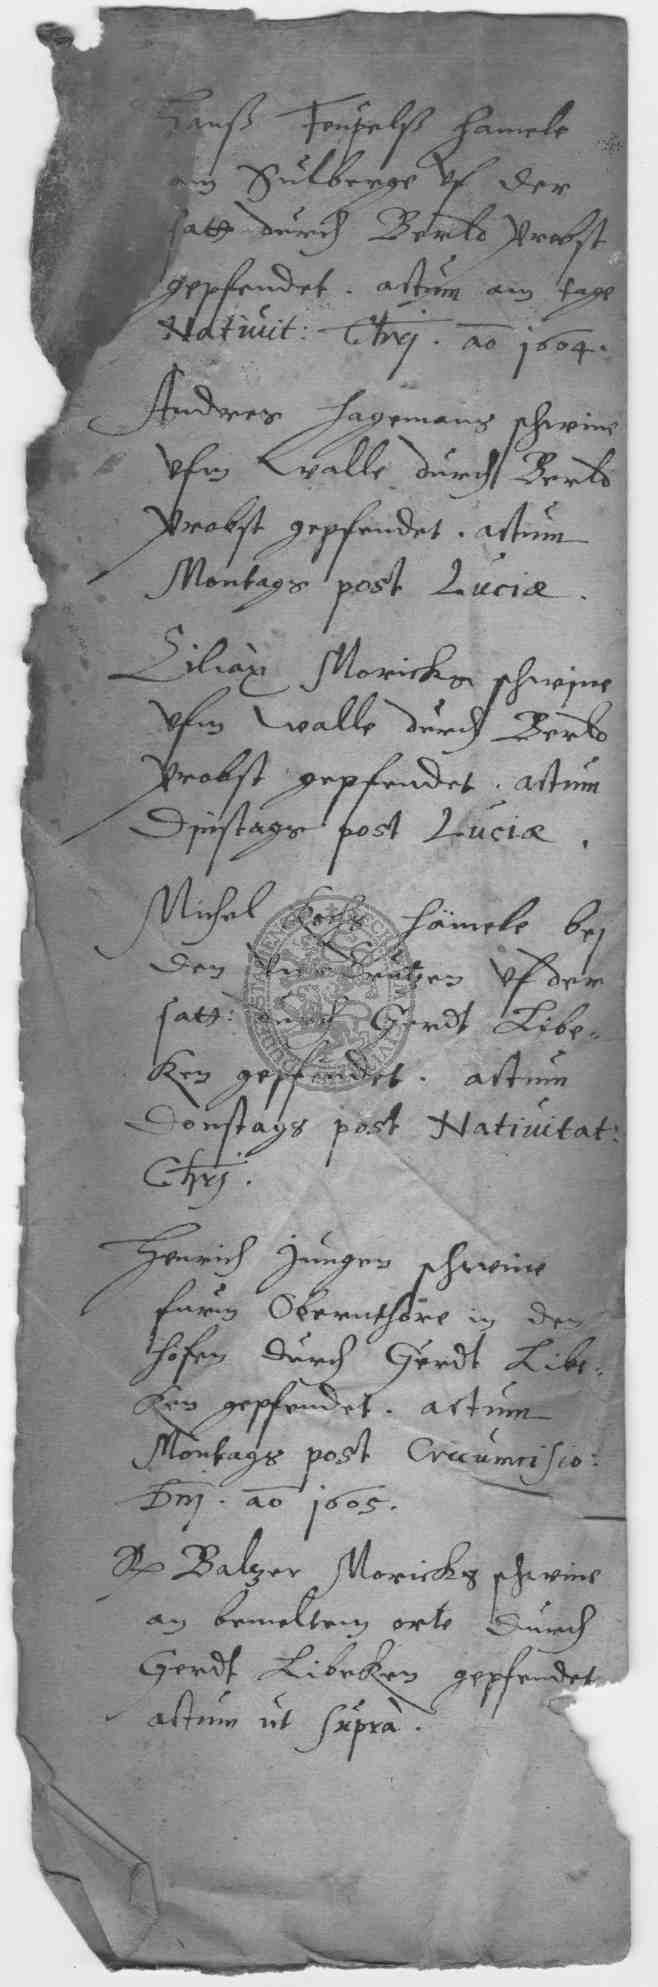 Hanß Teufelß Hamele
am Sulberge vf der
satt durch Berld Probst
gepfendet. actum am tage
Nativit: Chrj. ao 1604.
Andres Hagemans schwine
vfm walle durch Berld
Probst gepfendet. actum
Montags post Luciæ.
Ciliax Moricks schwine
vfm walle durch Berld
Probst gepfendet. actum
Dinstags post Luciæ.
Michel Kochs Hämele bej
den vf der
satt: durch Gerdt Libe-
ken gepfendet. actum
Donstags post Nativitat:
Chrj.
Henrich Jungen schweine
furm Obernthore in den
höfen durch Gerdt Libe-
ken gepfendet. actum
Montags post Circumcisio:
Dnj. ao 1605.
Balzer Moricks schwine
an bemeltem orte durch
Gerdt Libeken gepfendet
actum ut suprà.